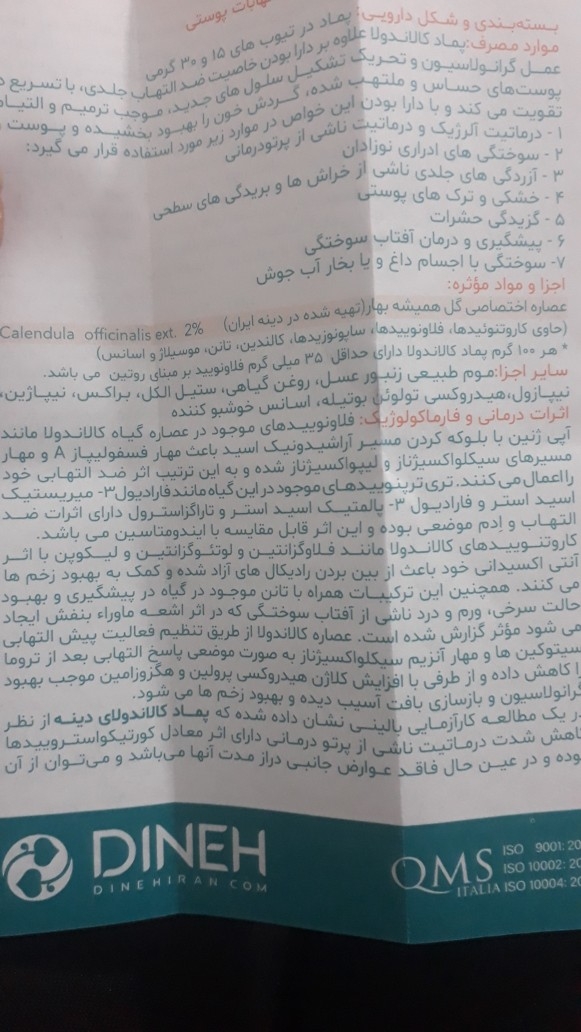 التهابات پوستی
بسته‌بندی و شکل دارویی: پماد در تیوب های ۱۵ و ۳۰ گرمی
موارد مصرف: پماد کالاندولا علاوه بر دارا بودن خاصیت ضد التهاب جلدی، با تسریع
عمل گرانولاسیون و تحریک تشکیل سلول های جدید، موجب ترمیم و التیام
پوست‌های حساس و ملتهب شده، گردش خون را بهبود بخشیده و پوست
تقویت می کند و با دارا بودن این خواص در موارد زیر مورد استفاده قرار می گیرد:
۱- درماتیت آلرژیک و درماتیت ناشی از پرتودرمانی
۲- سوختگی های ادراری نوزادان
۳- آزردگی های جلدی ناشی از خراش ها و بریدگی های سطحی
۴- خشکی و ترک های پوستی
۵- گزیدگی حشرات
۶- پیشگیری و درمان آفتاب سوختگی
۷- سوختگی با اجسام داغ و یا بخار آب جوش
اجزا و مواد مؤثره:
عصاره اختصاصی گل همیشه بهار (تهیه شده در دینه ایران) Calendula officinalis ext. 2%
(حاوی کاروتنوئیدها، فلاونوییدها، ساپونوزیدها، کالندین، تانن، موسیلاژ و اسانس)
* هر ۱۰۰ گرم پماد کالاندولا دارای حداقل ۳۵ میلی گرم فلاونویید بر مبنای روتین می باشد.
سایر اجزا: موم طبیعی زنبور عسل، روغن گیاهی، ستیل الکل، براکس، نیپاژین،
نیپازول، هیدروکسی تولوئن بوتیله، اسانس خوشبو کننده
اثرات درمانی و فارماکولوژیک: فلاونوییدهای موجود در عصاره گیاه کالاندولا مانند
آپی ژنین با بلوکه کردن مسیر آراشیدونیک اسید باعث مهار فسفولیپاز A و مهار
مسیرهای سیکلواکسیژناز و لیپواکسیژناز شده و به این ترتیب اثر ضد التهابی خود
را اعمال می کنند. تری ترپنوییدهای موجود در این گیاه مانند فارادیول ۳- میریستیک
اسید استر و فارادیول ۳- پالمتیک اسید استر و تاراگزاسترول دارای اثرات ضد
التهاب و اِدم موضعی بوده و این اثر قابل مقایسه با ایندومتاسین می باشد.
کاروتنوییدهای کالاندولا مانند فلاوگزانتین و لوتئوگزانتین و لیکوپن با اثر
آنتی اکسیدانی خود باعث از بین بردن رادیکال های آزاد شده و کمک به بهبود زخم ها
می کنند. همچنین این ترکیبات همراه با تانن موجود در گیاه در پیشگیری و بهبود
حالت سرخی، ورم و درد ناشی از آفتاب سوختگی که در اثر اشعه ماوراء بنفش ایجاد
می شود مؤثر گزارش شده است. عصاره کالاندولا از طریق تنظیم فعالیت پیش التهابی
سیتوکین ها و مهار آنزیم سیکلواکسیژناز به صورت موضعی پاسخ التهابی بعد از تروما
را کاهش داده و از طرفی با افزایش کلاژن هیدروکسی پرولین و هگزوزامین موجب بهبود
گرانولاسیون و بازسازی بافت آسیب دیده و بهبود زخم ها می شود.
در یک مطالعه کارآزمایی بالینی نشان داده شده که پماد کالاندولای دینه از نظر
کاهش شدت درماتیت ناشی از پرتو درمانی دارای اثر معادل کورتیکواستروییدها
بوده و در عین حال فاقد عوارض جانبی دراز مدت آنها می‌باشد و می‌توان از آن
DINEH
DINEHIRAN.COM
QMS
ITALIA
ISO 9001: 20
ISO 10002: 20
ISO 10004: 20